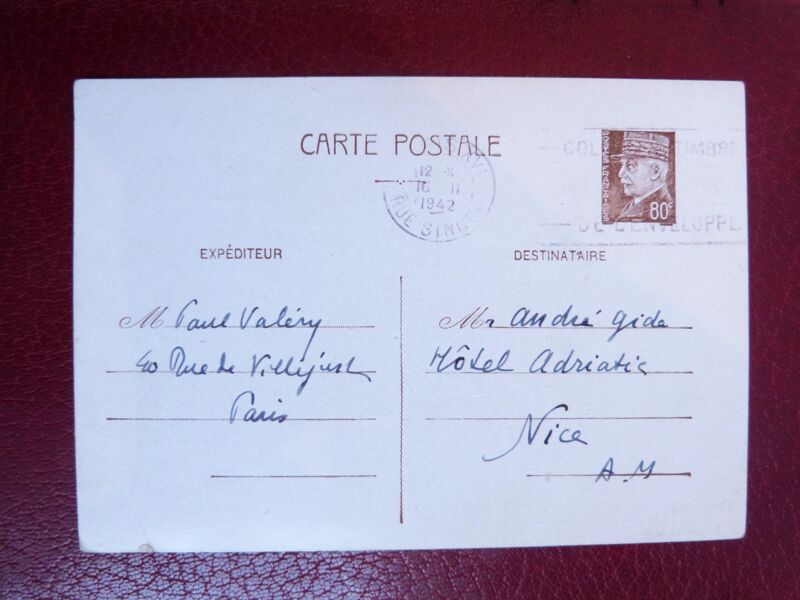 CARTE POSTALE
COL TIMBRE
DE L'ENVELOPPE
XVI
12 X
16 II
1942
RUE SINGER
POSTES FRANÇAISES
80c
EXPÉDITEUR
DESTINATAIRE
M Paul Valéry
40 Rue de Villejust
Paris
Mr André Gide
Hôtel Adriatic
Nice
A.M